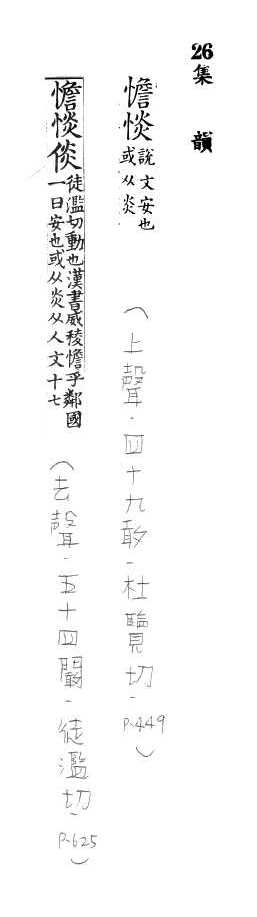 26
集韻
憺惔 說文安也
或从炎
(上聲.四十九敢-杜覽切.P.449)
憺惔倓 徒濫切動也漢書威稜憺乎鄰國
一曰安也或从炎从人文十七
(去聲.五十四闞-徒濫切.P.625)